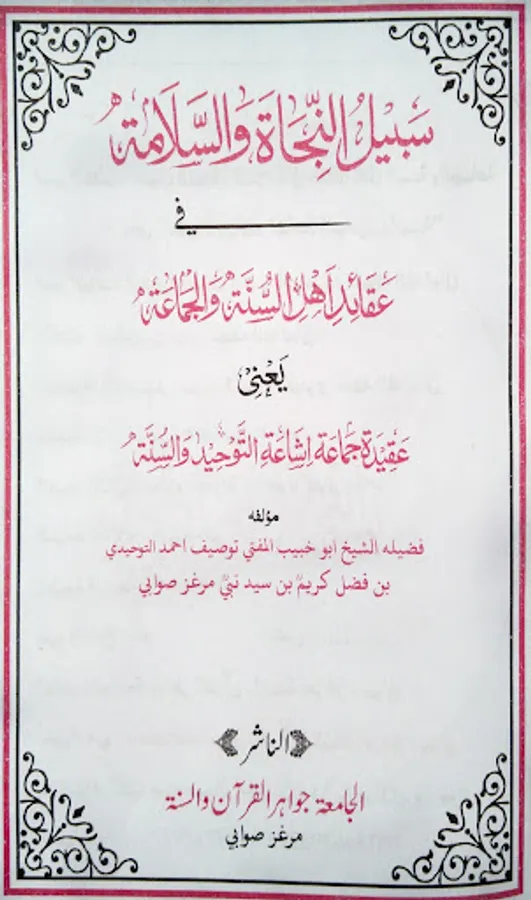 سَبِيلُ النَّجَاةِ وَالسَّلَامَةِ
فِي
عَقَائِدِ اَهْلِ السُّنَّةِ وَالْجَمَاعَةِ
يَعْنِى
عَقِيدَةُ جَمَاعَةِ اِشَاعَةِ التَّوْحِيدِ وَالسُّنَّةِ
مؤلفه
فضيله الشيخ ابو خبيب المفتي توصيف احمد التوحيدي
بن فضل كريمؒ بن سيد نبيؒ مرغز صوابي
الناشر
الجامعة جواهر القرآن والسنة
مرغز صوابي